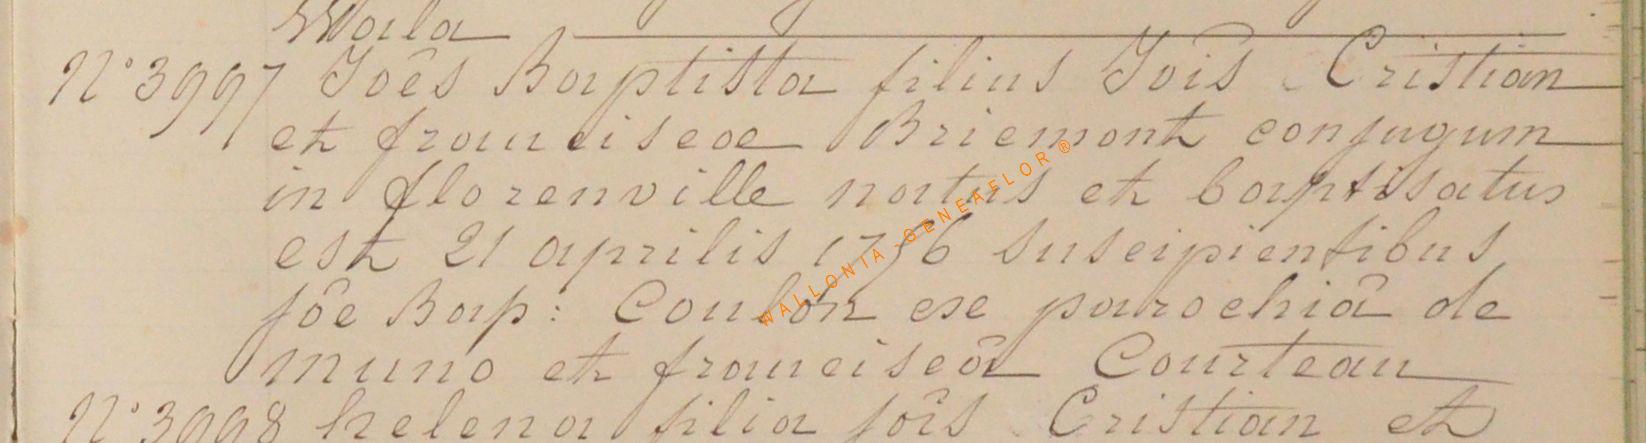 Maria
N° 3997 Joês Baptista filius Joîs Cristian
et franciscae Briemont conjugum
in florenville natus et baptisatus
est 21 aprilis 1756 suscipientibus
jôe Bap: Coulon exe parochiâ de
muno et franciscâ Courteau
N° 3998 helena filia joîs Cristian et
WALLONIA-GENEAFLOR®